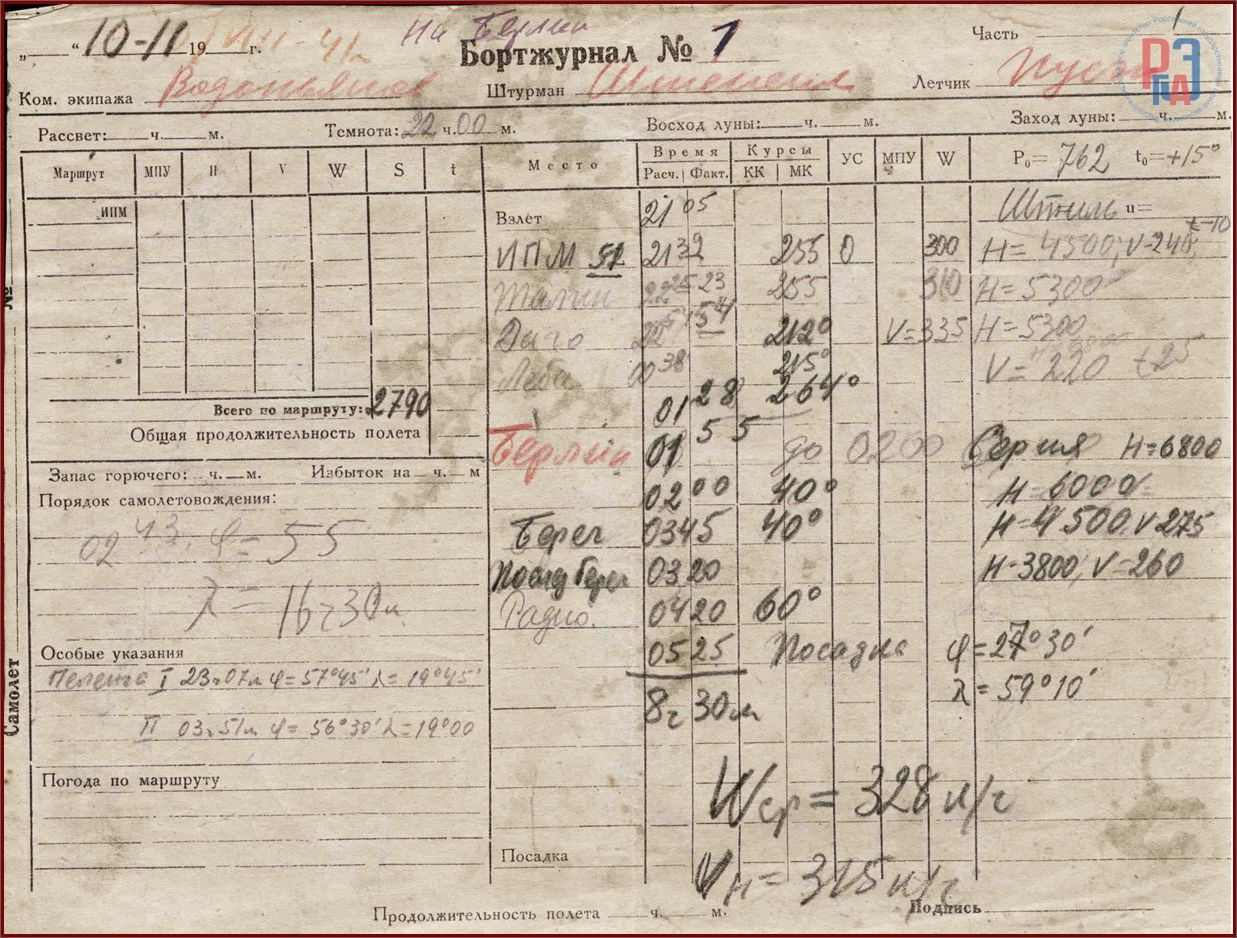 На Берлин
„ “ 10-11 19 VIII 41 г.
Бортжурнал № 1
Часть
РГАЭ
Ком. экипажа Водопьянов Штурман Штепенко Летчик Пусэп
Рассвет: ч. м. Темнота: 22 ч. 00 м. Восход луны: ч. м. Заход луны: ч. м.
Маршрут МПУ H V W S t Место Время Курсы УС МПУ W P₀= 762 t₀= +15°
Расч. Факт. КК МК
ИПМ Взлет 21 05 Штиль u=
t-10
ИПМ 51 21 32 255 0 300 H= 4500; V-240;
Талин 22 25 23 255 310 H= 5300
Даго 22 54 54 212° V=335 H= 5300
Леба 00 38 215° V= 220 t 25
Всего по маршруту: 2790 01 28 264°
Общая продолжительность полета
Берлин 01 55 до 0200 Серия H=6800
Запас горючего: ч. м. Избыток на ч. м
02 00 40° H= 6000
Порядок самолетовождения:
Берег 03 45 40° H= 4500. V 275
02 43. φ= 55
Послед берег 03 20 H-3800; V-260
λ= 16ч30м.
Радио. 04 20 60°
Особые указания 05 25 Посадка φ=27°30′
Пеленга I 23ч07м φ=57°45′ λ=19°45′ λ=59°10′
8ч 30м
II 03ч51м φ=56°30′ λ=19°00
Погода по маршруту
Wср= 328 к/ч
Посадка Vн= 315 к/ч
Продолжительность полета ч. м. Подпись
Самолет №